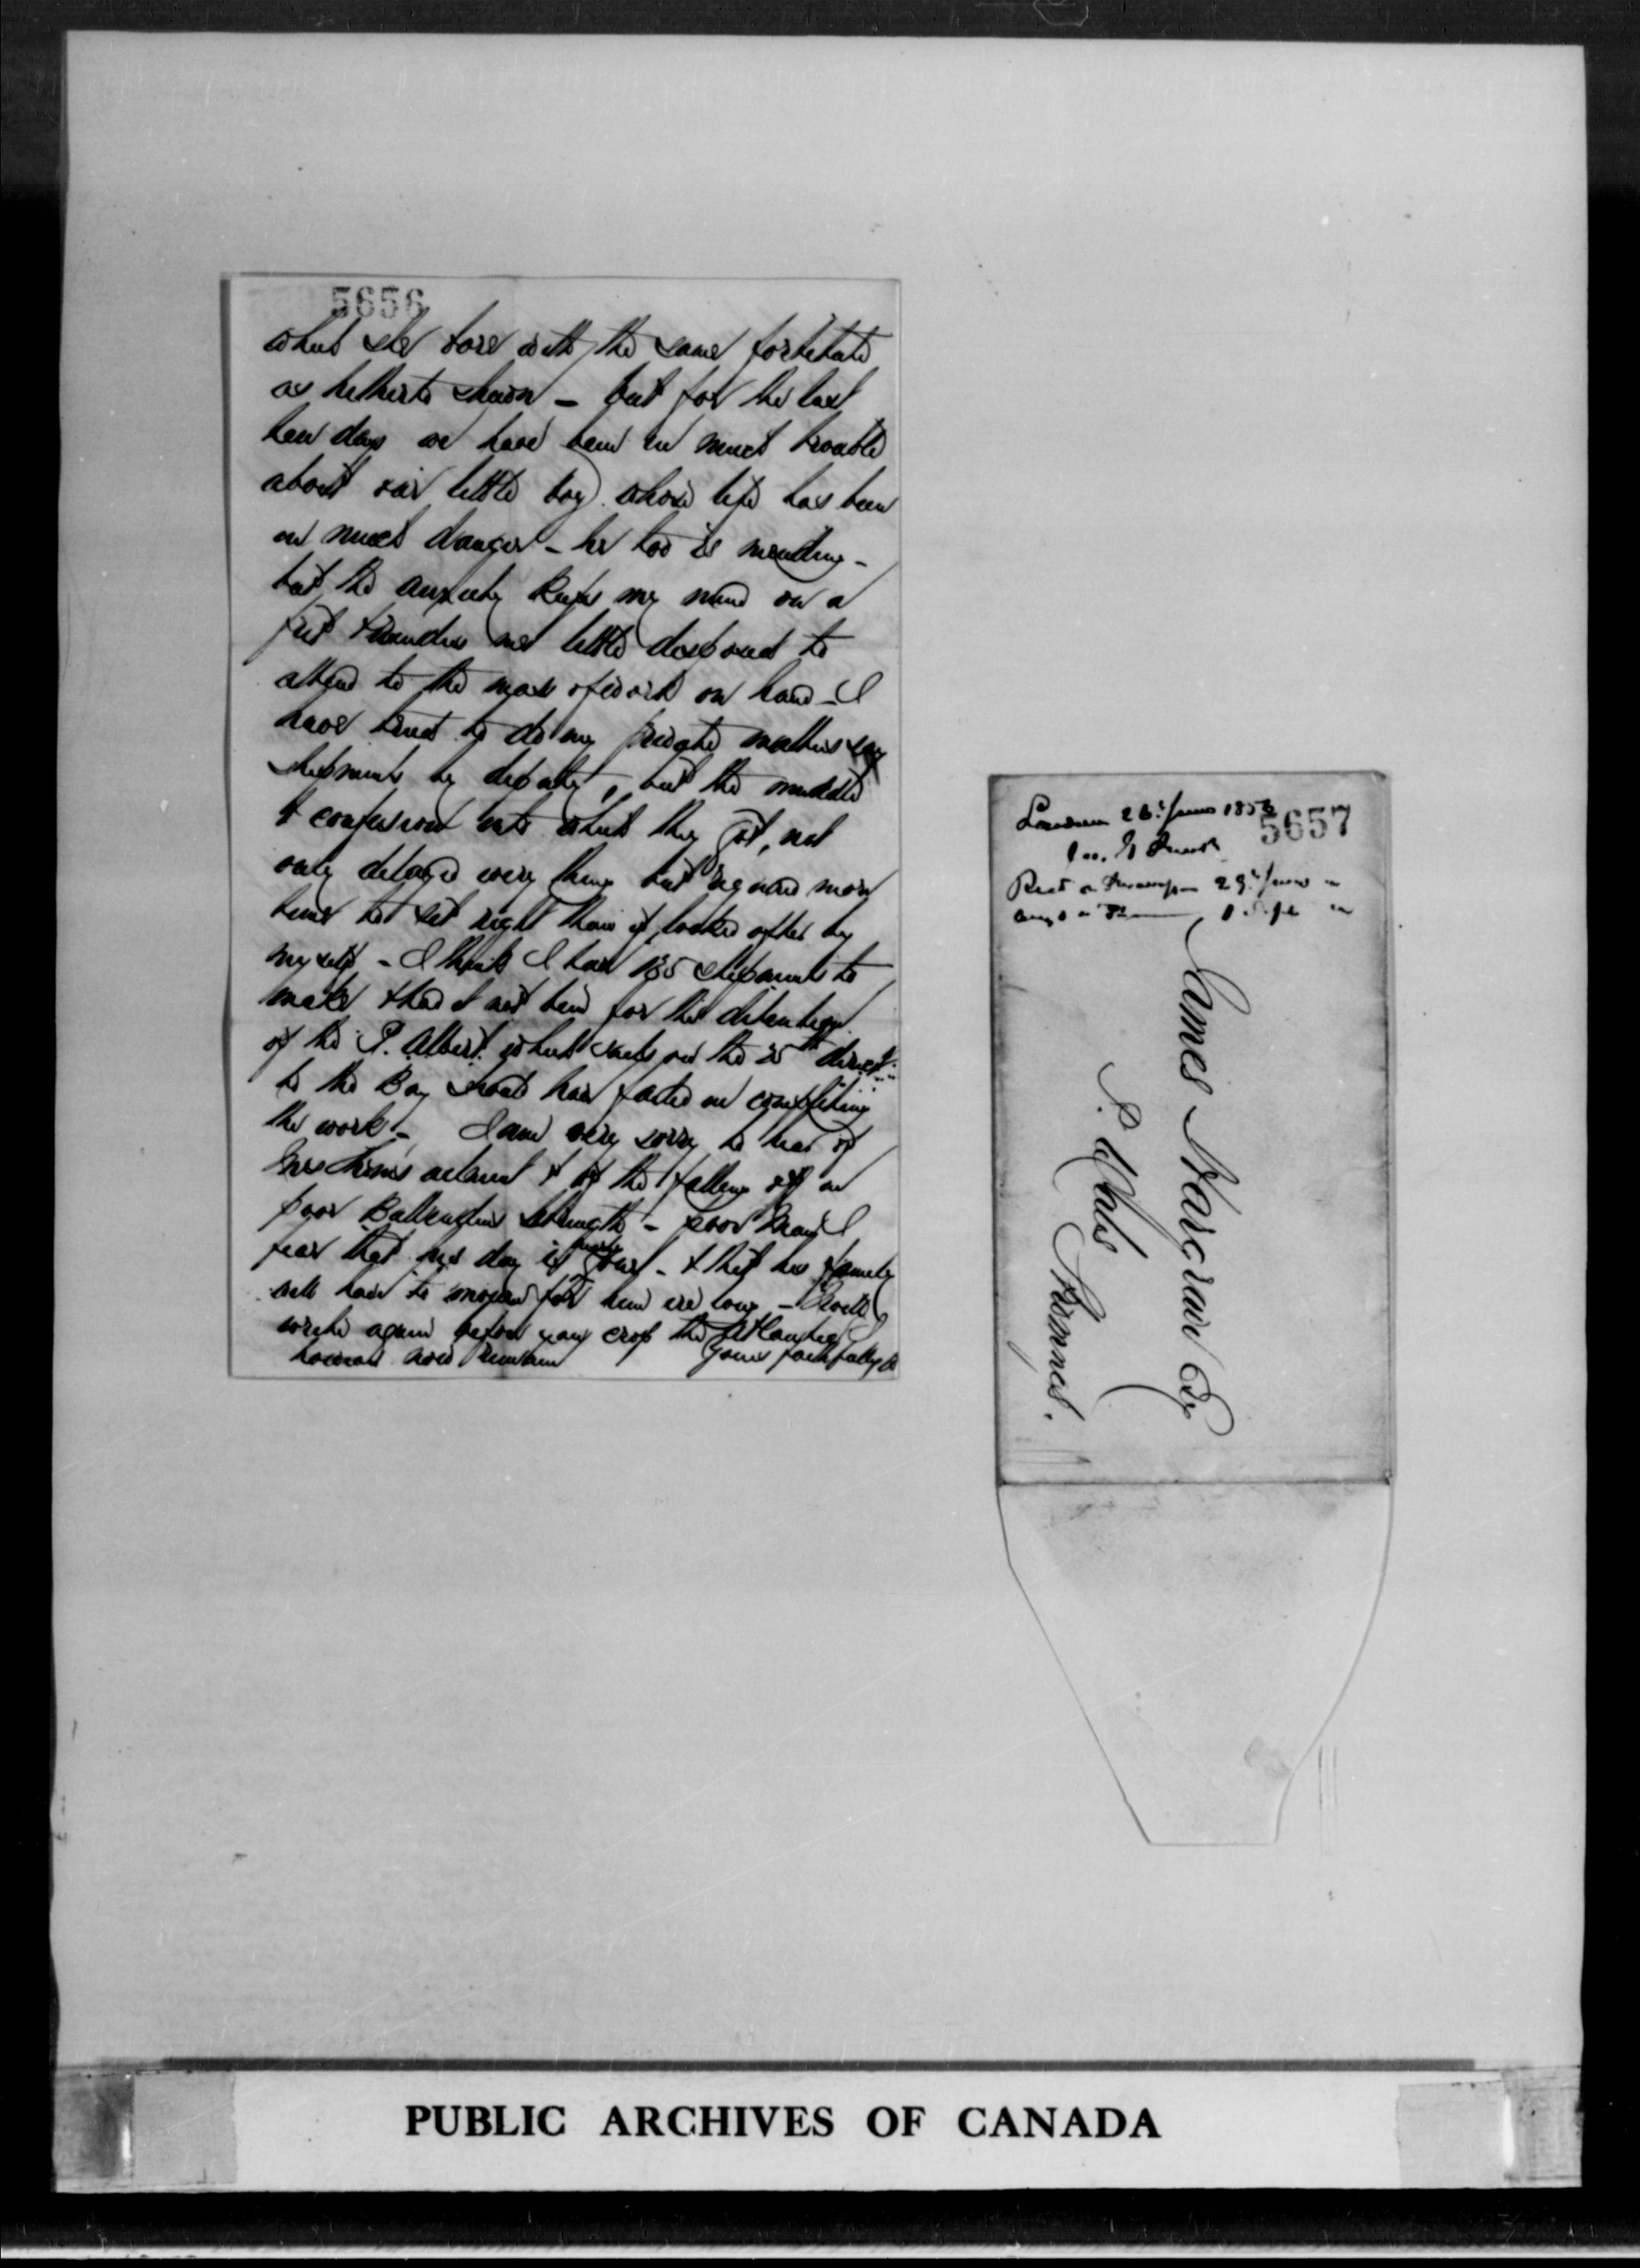 5656
which she bore with the same fortitude
as hitherto shewn - but for the last
few days we have been in much trouble
about our little boy whose life has been
in much danger - he too is mending -
but the anxiety keeps my mind on a
fret & renders me little disposed to
attend to the mass of work on hand - I
have tried to do my private matters say
shipments by deputy, but the muddle
& confusion into which they got, not
only delayed every thing but required more
time to set right than if looked after by
myself - I think I have 135 shipments to
make & had it not been for the detention
of the P. Albert which sails on the 25th direct
to the Bay should have failed in completing
the work - I am very sorry to hear of
Mrs ailment & of the falling off in
poor Ballenden's strength - poor man I
fear that his day is nearly gone - & that his family
will have to mourn for him ere long - I will
write again before you cross the Atlantic I
however now remain Yours faithfully
5657
London 26 June 185
Recd 29 June "
1 Sept "
James Hargrave Esq
S. Vales
Stromness.
PUBLIC ARCHIVES OF CANADA